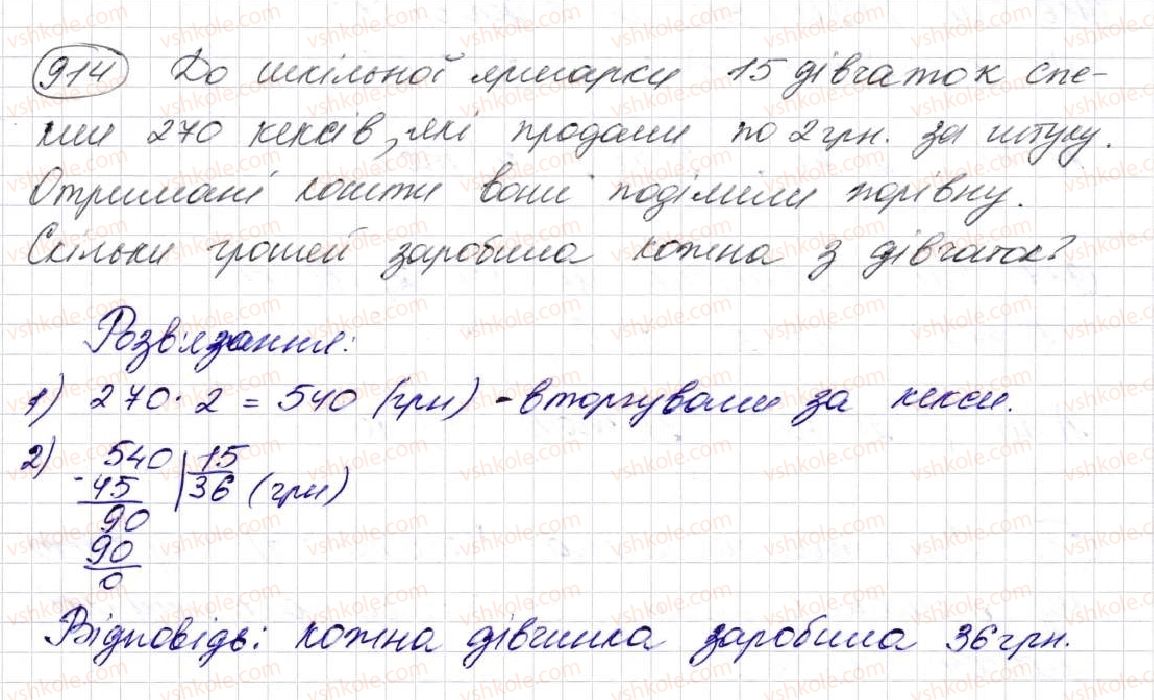 914 До шкільної ярмарки 15 дівчаток спе-
кли 270 кексів, які продали по 2 грн. за штуку.
Отримані кошти вони поділили порівну.
Скільки грошей заробила кожна з дівчаток?
Розв'язання:
1) 270 · 2 = 540 (грн) - вторгували за кекси.
2) 540 | 15
- 45 | 36 (грн)
90
90
0
Відповідь: кожна дівчинка заробила 36 грн.